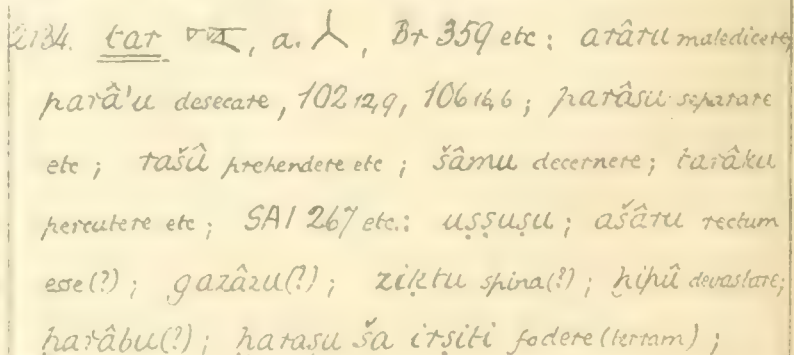 2134. tar 𒋻, a. 人, Br 359 etc: arâru maledicere,
parâ'u desecare, 102 12,9, 106 16,6; parâsu separare
etc; rašû prehendere etc; šâmu decernere; tarâku
percutere etc; SAI 267 etc.: uṣṣuṣu; ašâru rectum
esse(?); gazâzu(?); ziktu spina(?); ḫipû devastare;
ḫarâbu(?); ḫarasu ša irṣiti fodere (terram);